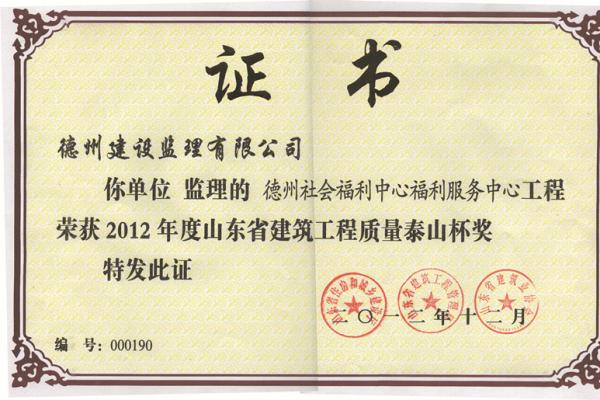 证 书
德州建设监理有限公司
你单位 监理的 德州社会福利中心福利服务中心工程
荣获2012年度山东省建筑工程质量泰山杯奖
特发此证
山东省住房和城乡建设厅
山东省建筑工程管理局
山东省建筑业协会
二〇一二年十二月
编 号:000190